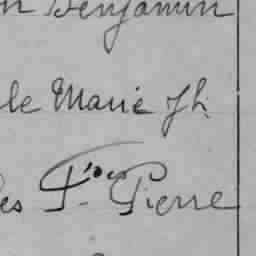 n Benjamin
le Marie Jh
es Fçois Pierre